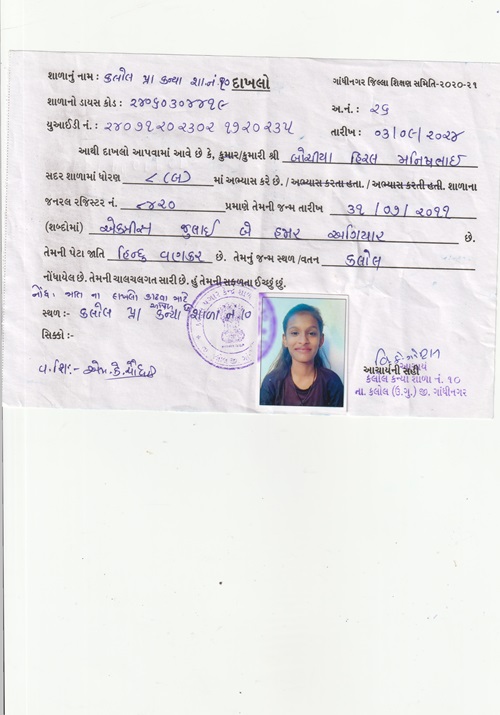 શાળાનું નામ : કલોલ પ્રા કન્યા શા નં ૧૦ દાખલો
ગાંધીનગર જિલ્લા શિક્ષણ સમિતિ-૨૦૨૦-૨૧
શાળાનો ડાયસ કોડ : ૨૪૦૬૦૩૦૪૪૧૯ અ.નં. : ૨૬
યુઆઈડી નં. : ૨૪૦૭૧૨૦૨૩૦૨ ૧૧૨૦૨૩૫ તારીખ : ૦૩/૦૯/૨૦૨૪
આથી દાખલો આપવામાં આવે છે કે, કુમાર/કુમારી શ્રી બોચીયા હિરલ મનિષભાઈ
સદર શાળામાં ધોરણ ૮ (બ) માં અભ્યાસ કરે છે. / અભ્યાસ કરતા હતા. / અભ્યાસ કરતી હતી. શાળાના
જનરલ રજિસ્ટર નં. ૭૪૨૦ પ્રમાણે તેમની જન્મ તારીખ ૩૧ / ૦૭ / ૨૦૧૧
(શબ્દોમાં) એકત્રીસ જુલાઈ બે હજાર અગિયાર છે.
તેમની પેટા જાતિ હિન્દુ વણકર છે. તેમનું જન્મ સ્થળ / વતન કલોલ
નોંધાયેલ છે. તેમની ચાલચલગત સારી છે. હું તેમની સફળતા ઈચ્છું છું.
નોંધ : જાત ના દાખલો કાઢવા માટે
સ્થળ :- કલોલ પ્રા કન્યા શાળા નં ૧૦
સિક્કો :-
વ.શિ:- એમ.કે.ચૌધરી
આચાર્યની સહી
આચાર્ય
કલોલ કન્યા શાળા નં. ૧૦
તા. કલોલ (ઉ.ગુ.) જી. ગાંધીનગર